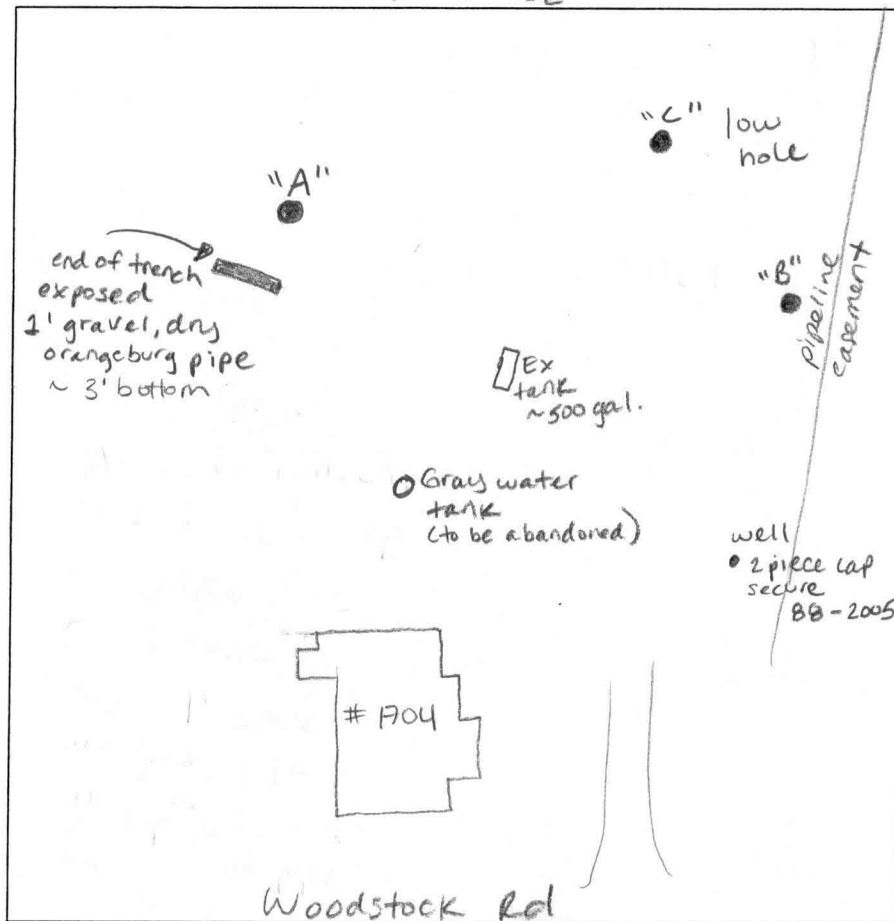 "C" low
hole
"A"
end of trench
exposed
1' gravel, dry
orangeburg pipe
~ 3' bottom
"B"
pipeline
easement
Ex
tank
~500 gal.
Gray water
tank
(to be abandoned)
well
2 piece cap
secure
88-2005
# 1704
Woodstock Rd